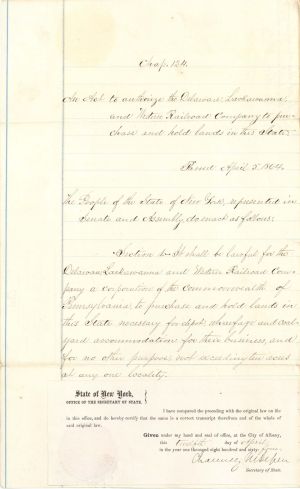 Chap. 124.
An Act to authorize the Delaware, Lackawanna
and Western Railroad Company to pur-
chase and hold lands in this State.
Passed April 5, 1864.
The People of the State of New York, represented in
Senate and Assembly, do enact as follows:
Section 1. It shall be lawful for the
Delaware, Lackawanna and Western Railroad Com-
pany a corporation of the commonwealth of
Pennsylvania, to purchase and hold lands in
this State necessary for depot, wharfage and coal
yard accommodation for their business, and
for no other purpose, not exceeding ten acres
at any one locality.
State of New York,
OFFICE OF THE SECRETARY OF STATE.
I have compared the preceding with the original law on file
in this office, and do hereby certify that the same is a correct transcript therefrom and of the whole of
said original law.
Given under my hand and seal of office, at the City of Albany,
this day of April
in the year one thousand eight hundred and sixty four
Chauncey M Depew
Secretary of State.